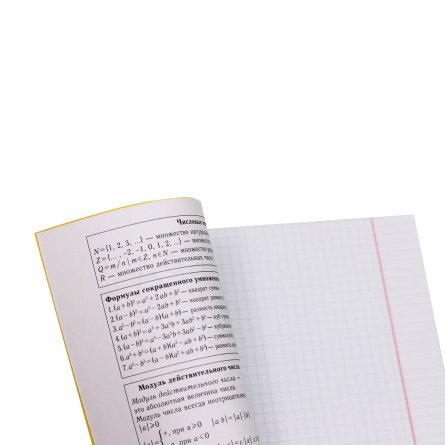 Числовые
N={1, 2, 3, ...} — множество
Z={..., -2, -1, 0, 1, 2, ...} — множество
Q=m/n | m∈Z, n∈N — множество
R — множество действительных чисел
Формулы сокращенного умножения
1.(a+b)²=a²+2ab+b² — квадрат суммы
2.(a−b)²=a²−2ab+b² — квадрат
3.a²−b²=(a−b)(a+b) — разность
4.(a+b)³=a³+3a²b+3ab²+b³ — куб
5.(a−b)³=a³−3a²b+3ab²−b³ — куб
6.a³+b³=(a+b)(a²−ab+b²) —
7.a³−b³=(a−b)(a²+ab+b²) —
Модуль действительного числа
Модуль действительного числа —
это абсолютная величина числа.
Модуль числа всегда неотрицателен.
|a|⩾0
+, при a⩾0 |a·b|=|a||b|
|a|=
, при a<0